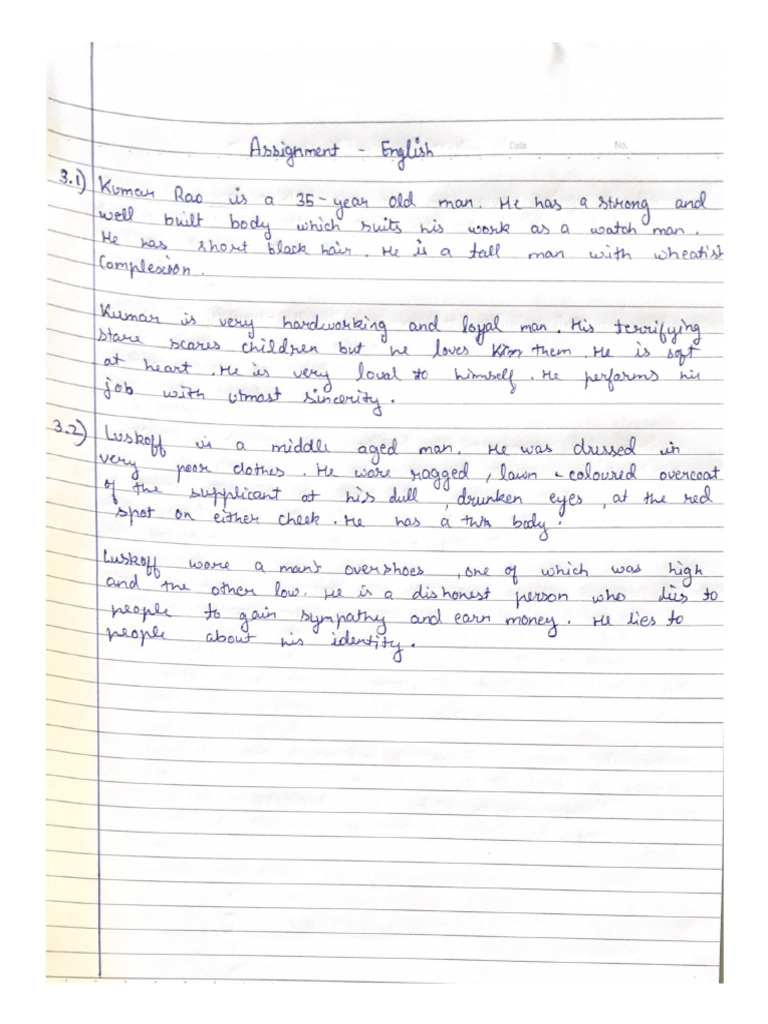 Assignment - English
Date No.
3.1) Kumar Rao is a 35-year old man. He has a strong and
well built body which suits his work as a watch man.
He has short black hair. He is a tall man with wheatish
Complexion.
Kumar is very hardworking and loyal man. His terrifying
stare scares children but he loves them. He is soft
at heart. He is very loyal to himself. He performs his
job with utmost sincerity.
3.2) Luskoff is a middle aged man. He was dressed in
very poor clothes. He wore ragged, lawn-coloured overcoat
of the supplicant at his dull, drunken eyes, at the red
spot on either cheek. He has a thin body.
Luskoff wore a man's overshoes, one of which was high
and the other low. He is a dishonest person who lies to
people to gain sympathy and earn money. He lies to
people about his identity.